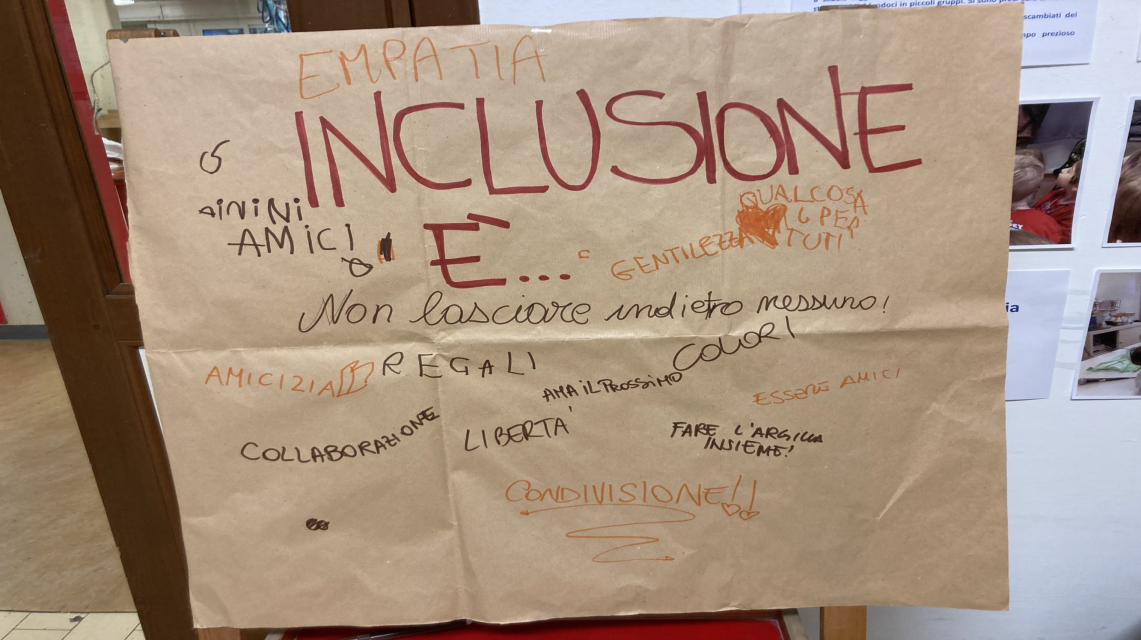 ndoci in piccoli gruppi. Si sono
scambiati dei
prezioso
EMPATIA
INCLUSIONE
È...
AMICI
QUALCOSA
PER
TUTI
GENTILEZZA
Non lasciare indietro nessuno!
COLORI
AMICIZIA
REGALI
AMA IL PROSSIMO
ESSERE AMICI
COLLABORAZIONE
LIBERTÀ
FARE L'ARGILLA
INSIEME!
CONDIVISIONE!!